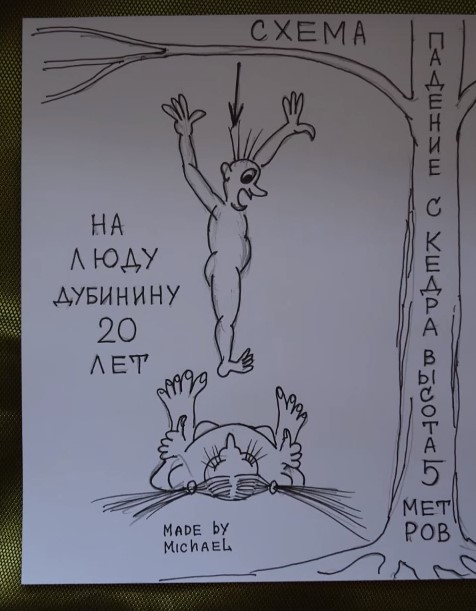 СХЕМА
ПАДЕНИЕ С КЕДРА ВЫСОТА 5 МЕТ
РОВ
НА
ЛЮДУ
ДУБИНИНУ
20
ЛЕТ
MADE by
MICHAEL